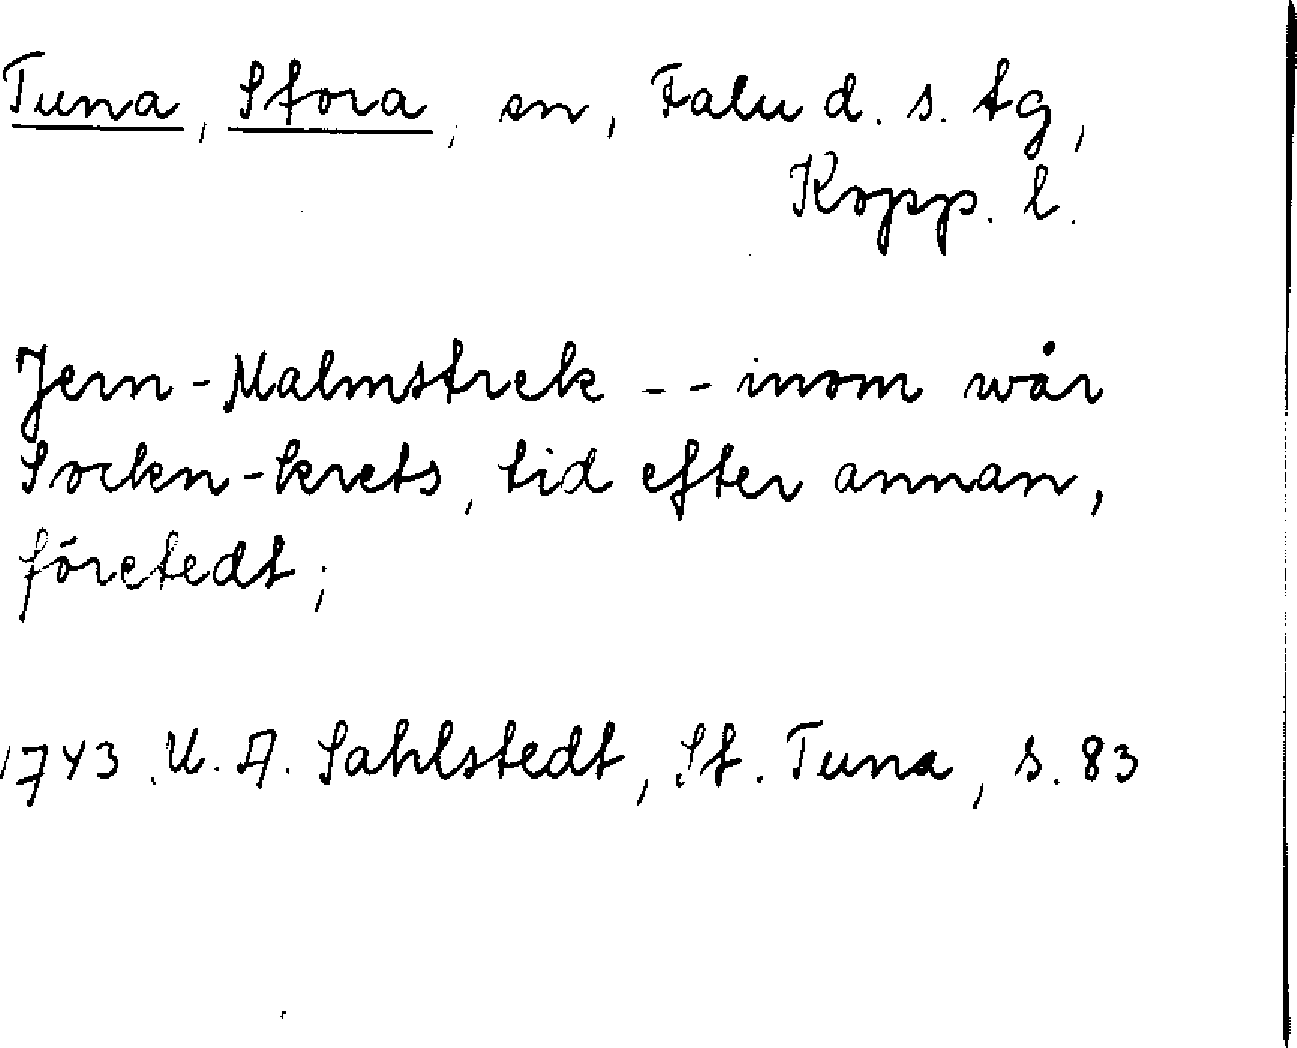 Tuna, Stora, sn, Falu d. s. tg,
Kopp. l.
Jern-Malmstrek -- inom wår
Sockn-krets, tid efter annan,
företedt;
1743. U. A. Sahlstedt, St. Tuna, s. 83